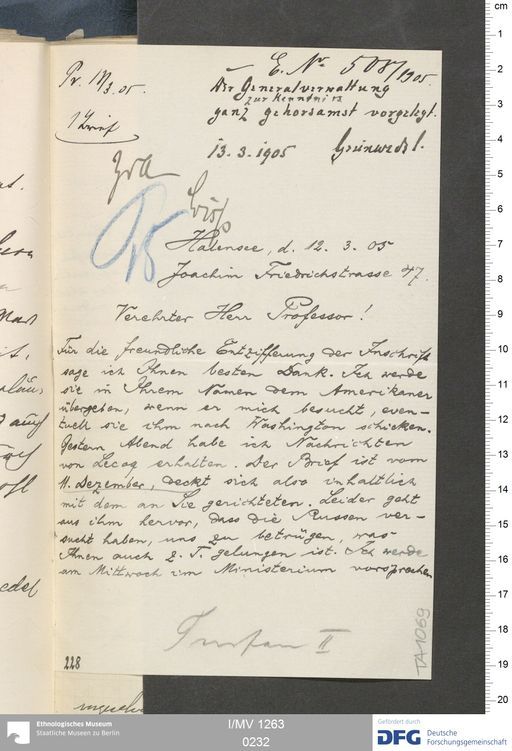 E. No 508/1905.
Pr. 14/3. 05.
Der Generalverwaltung
zur Kenntnis
ganz gehorsamst vorgelegt.
1 Brief
13. 3. 1905 Grünwedel.
Halensee, d. 12. 3. 05
Joachim Friedrichstrasse 47.
Verehrter Herr Professor!
Für die freundliche Entzifferung der Inschrift
sage ich Ihnen besten Dank. Ich werde
sie in Ihrem Namen dem Amerikaner
übergeben, wenn er mich besucht, even-
tuell sie ihm nach Washington schicken.
Gestern Abend habe ich Nachrichten
von Lecoq erhalten. Der Brief ist vom
11. Dezember, deckt sich also inhaltlich
mit dem an Sie gerichteten. Leider geht
aus ihm hervor, dass die Russen ver-
sucht haben, uns zu betrügen, was
Ihnen auch z. T. gelungen ist. Ich werde
am Mittwoch im Ministerium vorsprechen
Turfan II
TA 1069
228
cm
1
2
3
4
5
6
7
8
9
10
11
12
13
14
15
16
17
18
19
20
Ethnologisches Museum
Staatliche Museen zu Berlin
I/MV 1263
0232
Gefördert durch
DFG Deutsche
Forschungsgemeinschaft